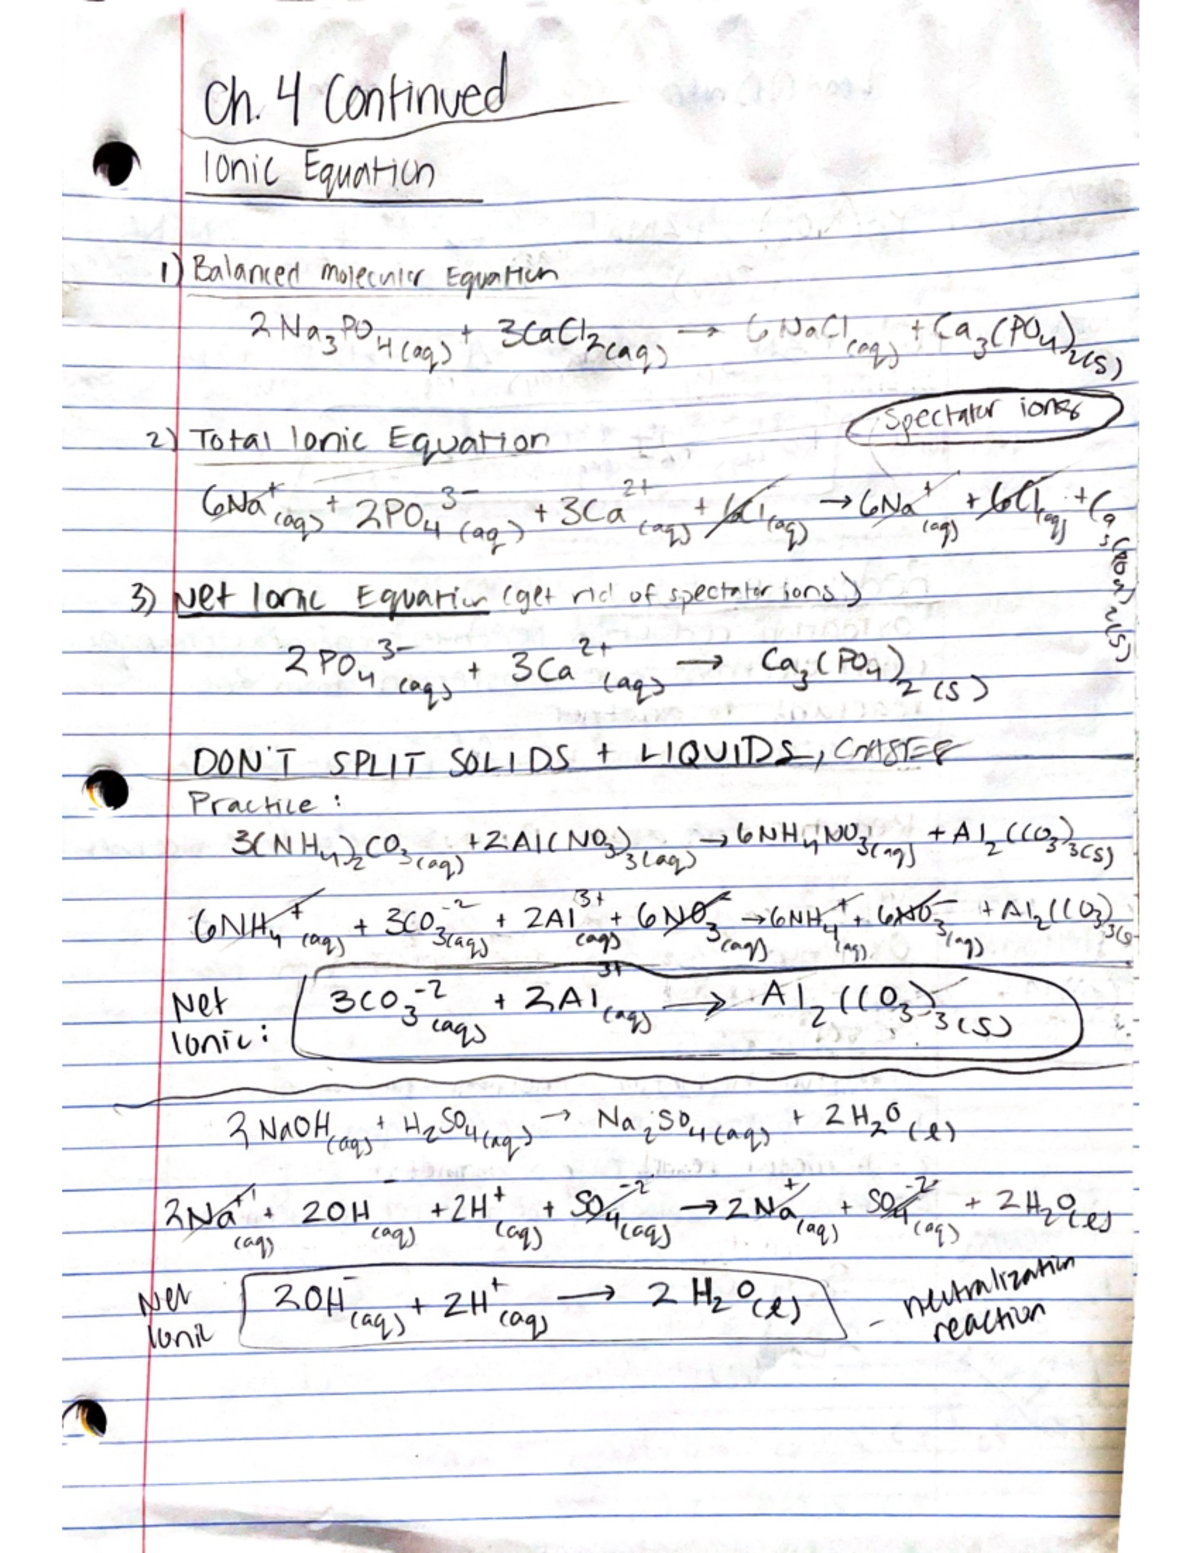 Ch. 4 Continued
Ionic Equation
1) Balanced molecular Equation
2Na₃PO₄(aq) + 3CaCl₂(aq) → 6NaCl(aq) + Ca₃(PO₄)₂(s)
Spectator ions
2) Total Ionic Equation
6Na⁺(aq) + 2PO₄³⁻(aq) + 3Ca²⁺(aq) + 6Cl(aq) → 6Na⁺(aq) + 6Cl(aq) + Ca₃(PO₄)₂(s)
3) Net Ionic Equation (get rid of spectator ions)
2PO₄³⁻(aq) + 3Ca²⁺(aq) → Ca₃(PO₄)₂(s)
DON'T SPLIT SOLIDS + LIQUIDS,
Practice:
3(NH₄)₂CO₃(aq) + 2Al(NO₃)₃(aq) → 6NH₄NO₃(aq) + Al₂(CO₃)₃(s)
6NH₄⁺(aq) + 3CO₃⁻²(aq) + 2Al³⁺(aq) + 6NO₃⁻(aq) → 6NH₄⁺(aq) + 6NO₃⁻(aq) + Al₂(CO₃)₃(s
Net Ionic: 3CO₃⁻²(aq) + 2Al³⁺(aq) → Al₂(CO₃)₃(s)
2NaOH(aq) + H₂SO₄(aq) → Na₂SO₄(aq) + 2H₂O(l)
2Na⁺¹(aq) + 2OH⁻(aq) + 2H⁺(aq) + SO₄⁻²(aq) → 2Na⁺(aq) + SO₄⁻²(aq) + 2H₂O(l)
Net Ionic 2OH⁻(aq) + 2H⁺(aq) → 2H₂O(l) - neutralization reaction